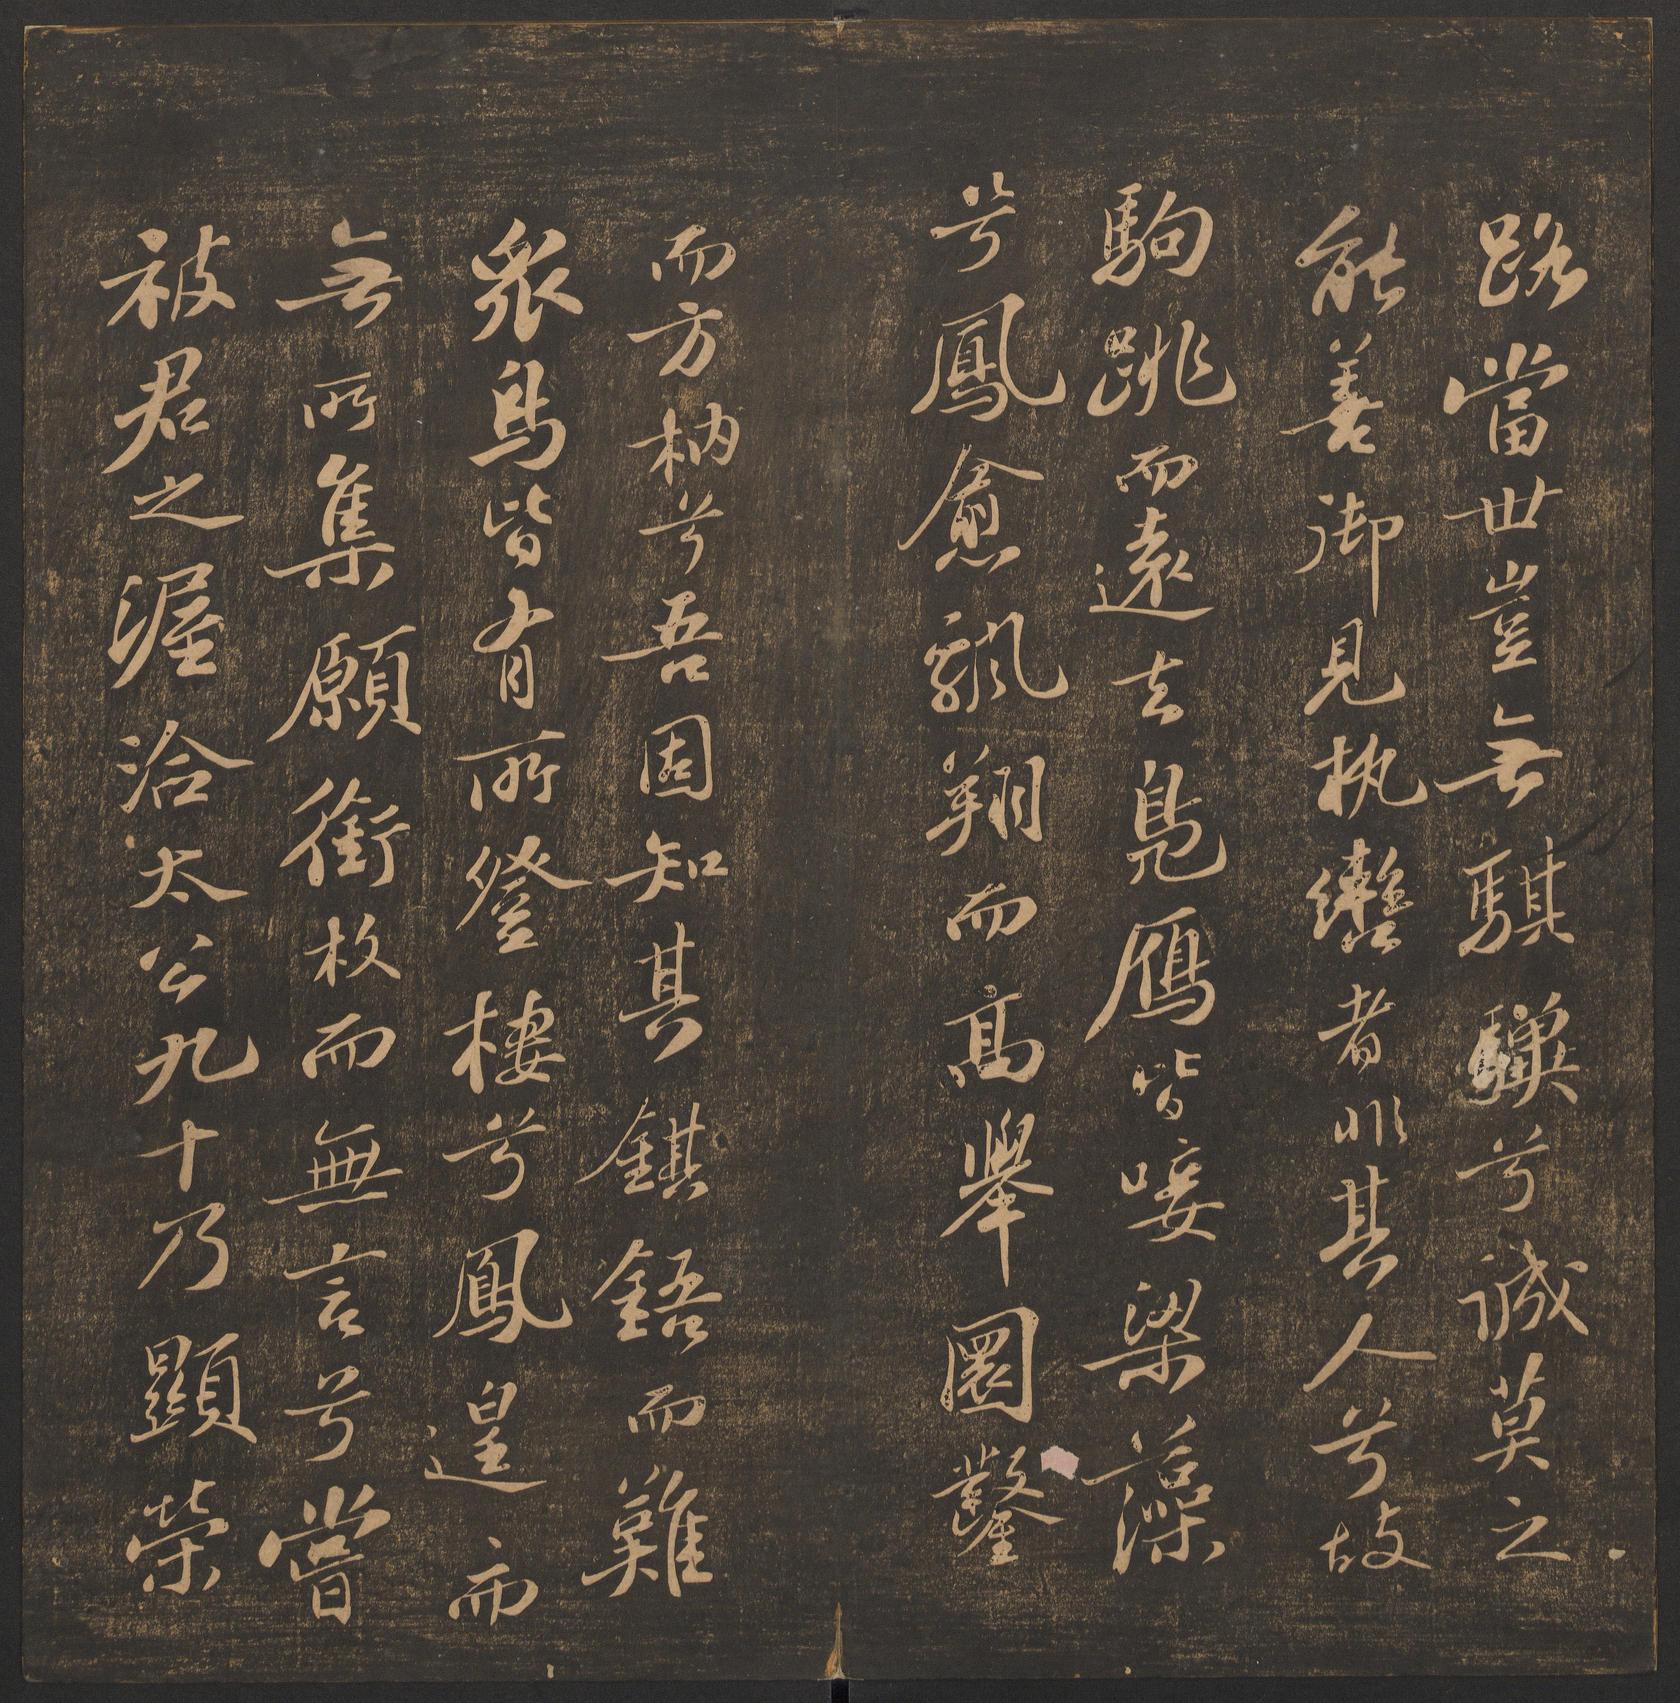 路當世豈無騏驥兮誠莫之
能善御見執轡者非其人兮故
駒跳而遠去鳧鴈皆唼粱藻
兮鳳愈飄翔而高舉圜鑿
而方枘兮吾固知其鉏鋙而難
衆鳥皆有所登棲兮鳳遑而
無所集願銜枚而無言兮嘗
被君之渥洽太公九十乃顯榮